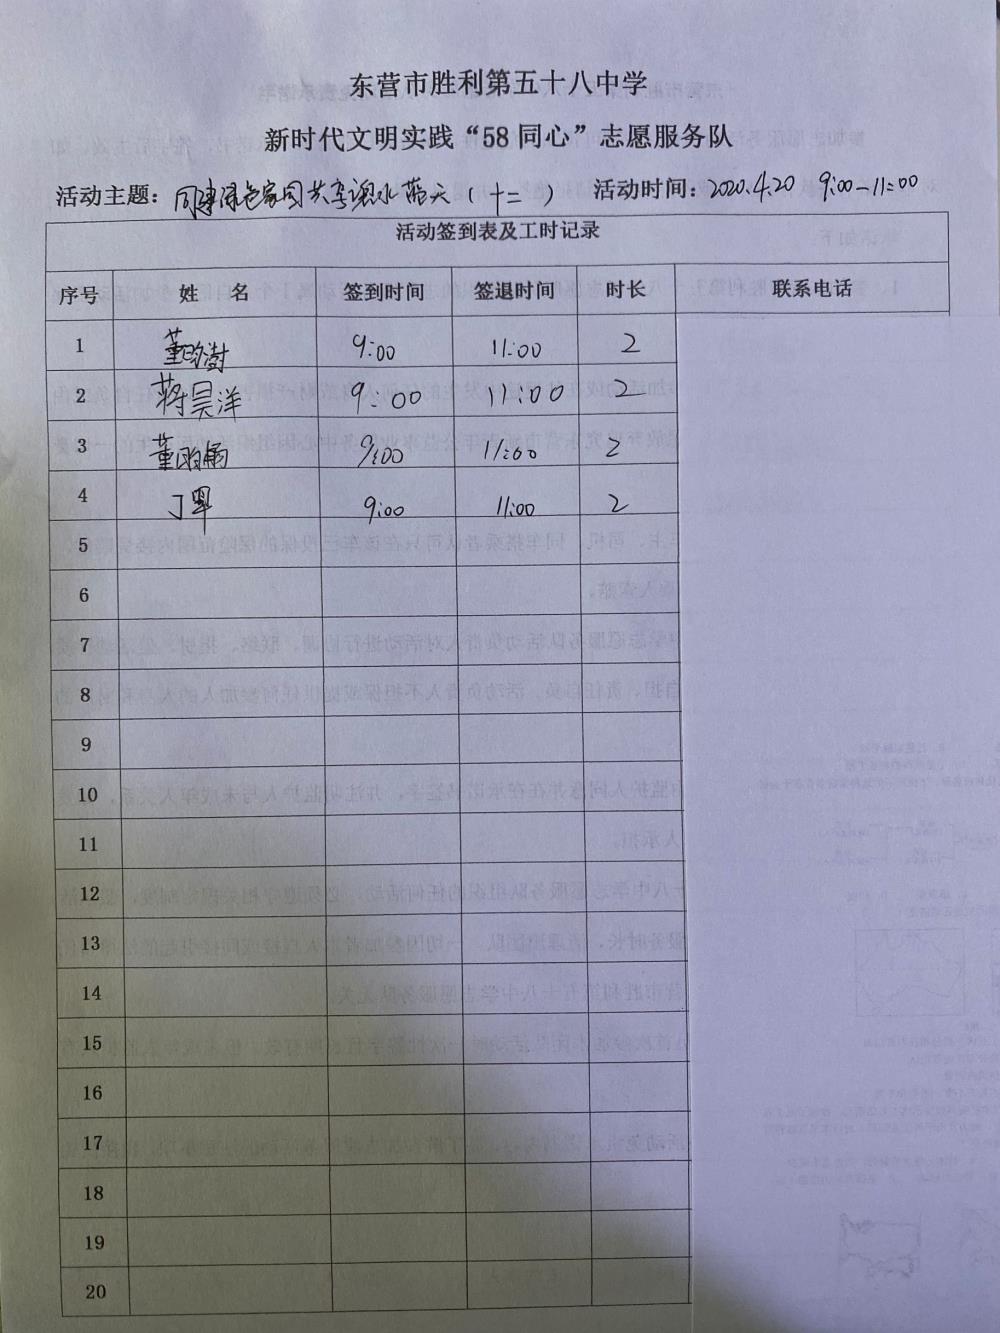 东营市胜利第五十八中学
新时代文明实践“58同心”志愿服务队
活动主题：同建绿色家园共享碧水蓝天（十二） 活动时间：2020.4.20 9:00-11:00
活动签到表及工时记录
序号 姓 名 签到时间 签退时间 时长 联系电话
1 董 9:00 11:00 2
2 蒋昊洋 9:00 11:00 2
3 董 9:00 11:00 2
4 丁 9:00 11:00 2
5
6
7
8
9
10
11
12
13
14
15
16
17
18
19
20